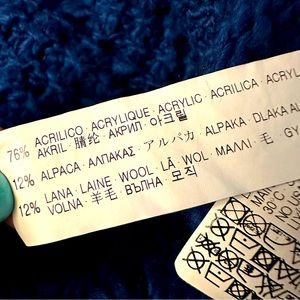 76% ACRILICO · ACRYLIQUE · ACRYLIC · ACRILICA · ACRYL
AKRIL · 腈纶 · АКРИЛ · 아크릴
12% ALPACA · ΑΛΠΑΚΑΣ · アルパカ · ALPAKA · DLAKA AL
12% LANA · LAINE · WOOL · LÃ · WOL · ΜΑΛΛΙ · 毛 · GY
VOLNA · 羊毛 · ВЪЛНА · 모직
30
NO